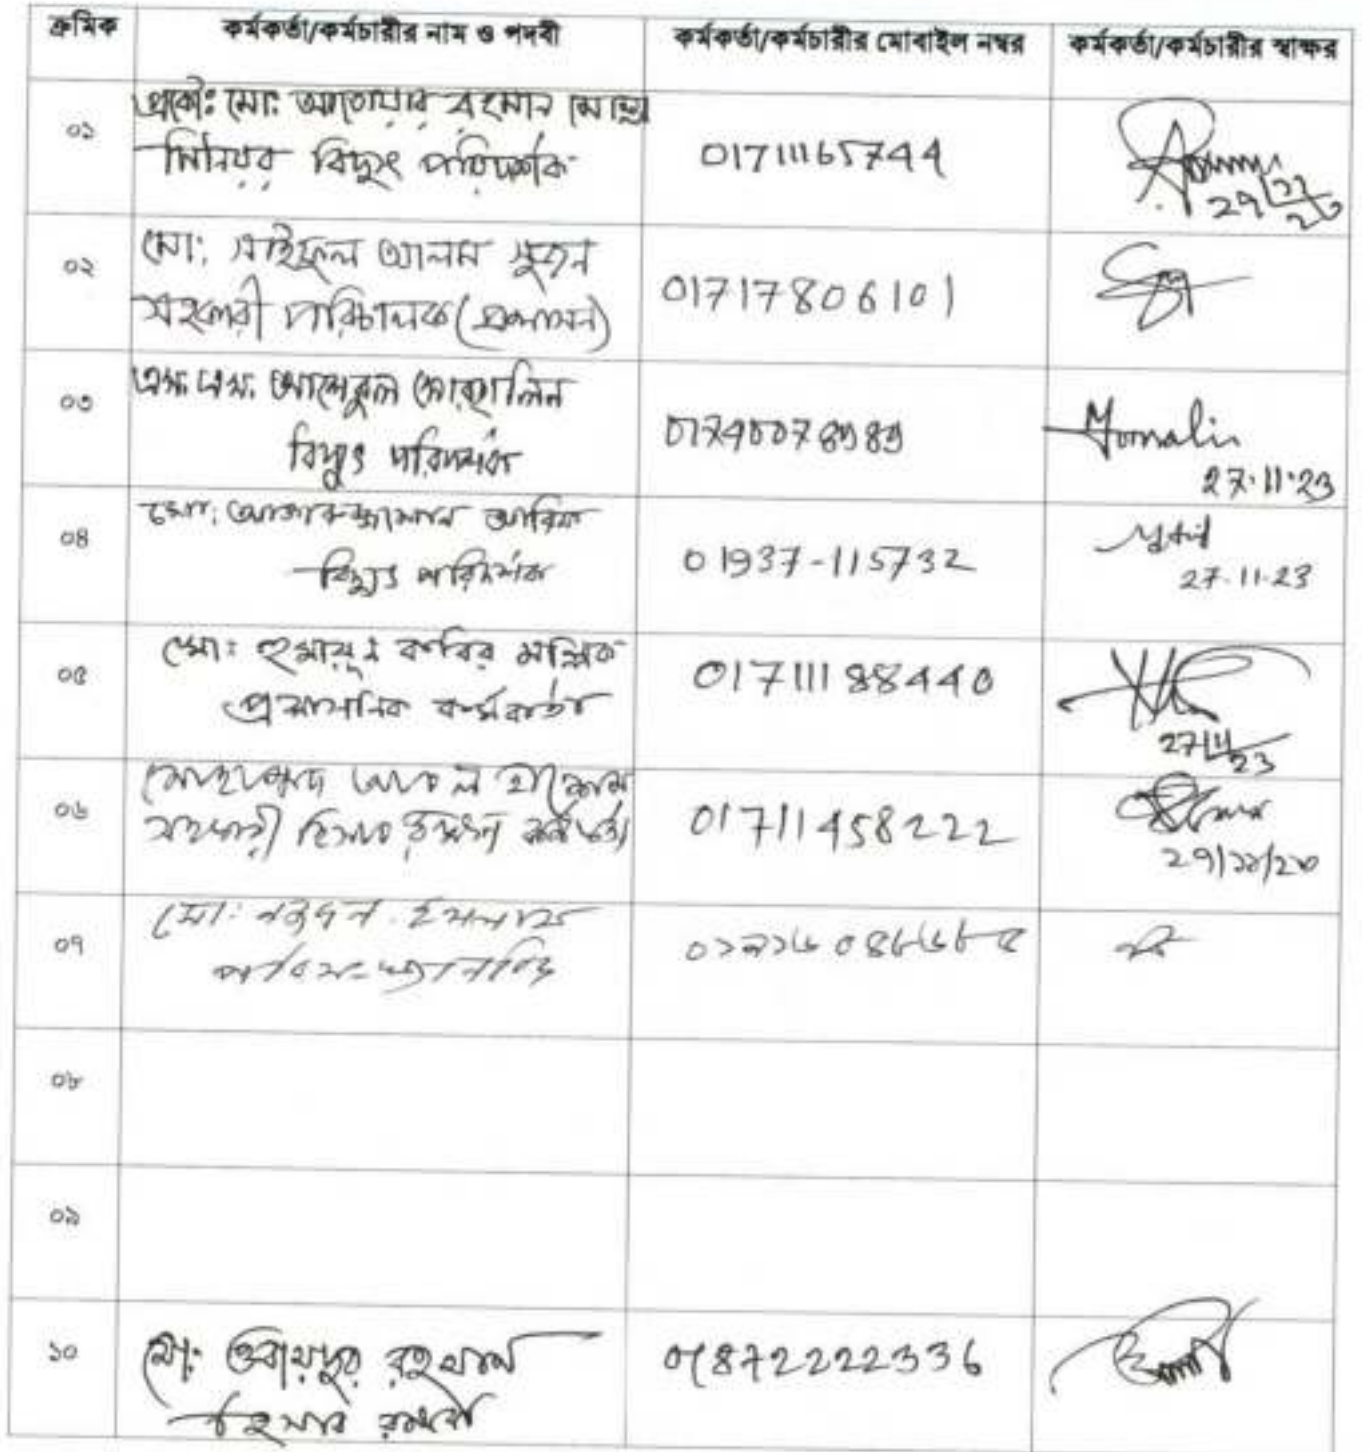 ক্রমিক কর্মকর্তা/কর্মচারীর নাম ও পদবী কর্মকর্তা/কর্মচারীর মোবাইল নম্বর কর্মকর্তা/কর্মচারীর স্বাক্ষর
০১ প্রকৌঃ মোঃ আতোয়ার রহমান মোল্লা
সিনিয়র বিদ্যুৎ পরিদর্শক 01711165744
২৭/১১/২৩
০২ মো: সাইফুল আলম সুজন
সহকারী পরিচালক (প্রশাসন) 01717806101
০৩ এস. এম. আশেকুল মোরসালিন
বিদ্যুৎ পরিদর্শক 01740078989
27.11.23
০৪ মো: আরিফ
বিদ্যুৎ পরিদর্শক 01937-115732
27.11.23
০৫ মোঃ হুমায়ুন কবির মল্লিক
প্রশাসনিক কর্মকর্তা 01711188440
27/11/23
০৬ মোহাম্মদ হাশেম
সহকারী হিসাব রক্ষণ কর্মকর্তা 01711458222
২৭/১১/২৩
০৭ মো: নজরুল ইসলাম
০৮
০৯
১০ মো: ওবায়দুর রহমান
হিসাব রক্ষক 01872222336